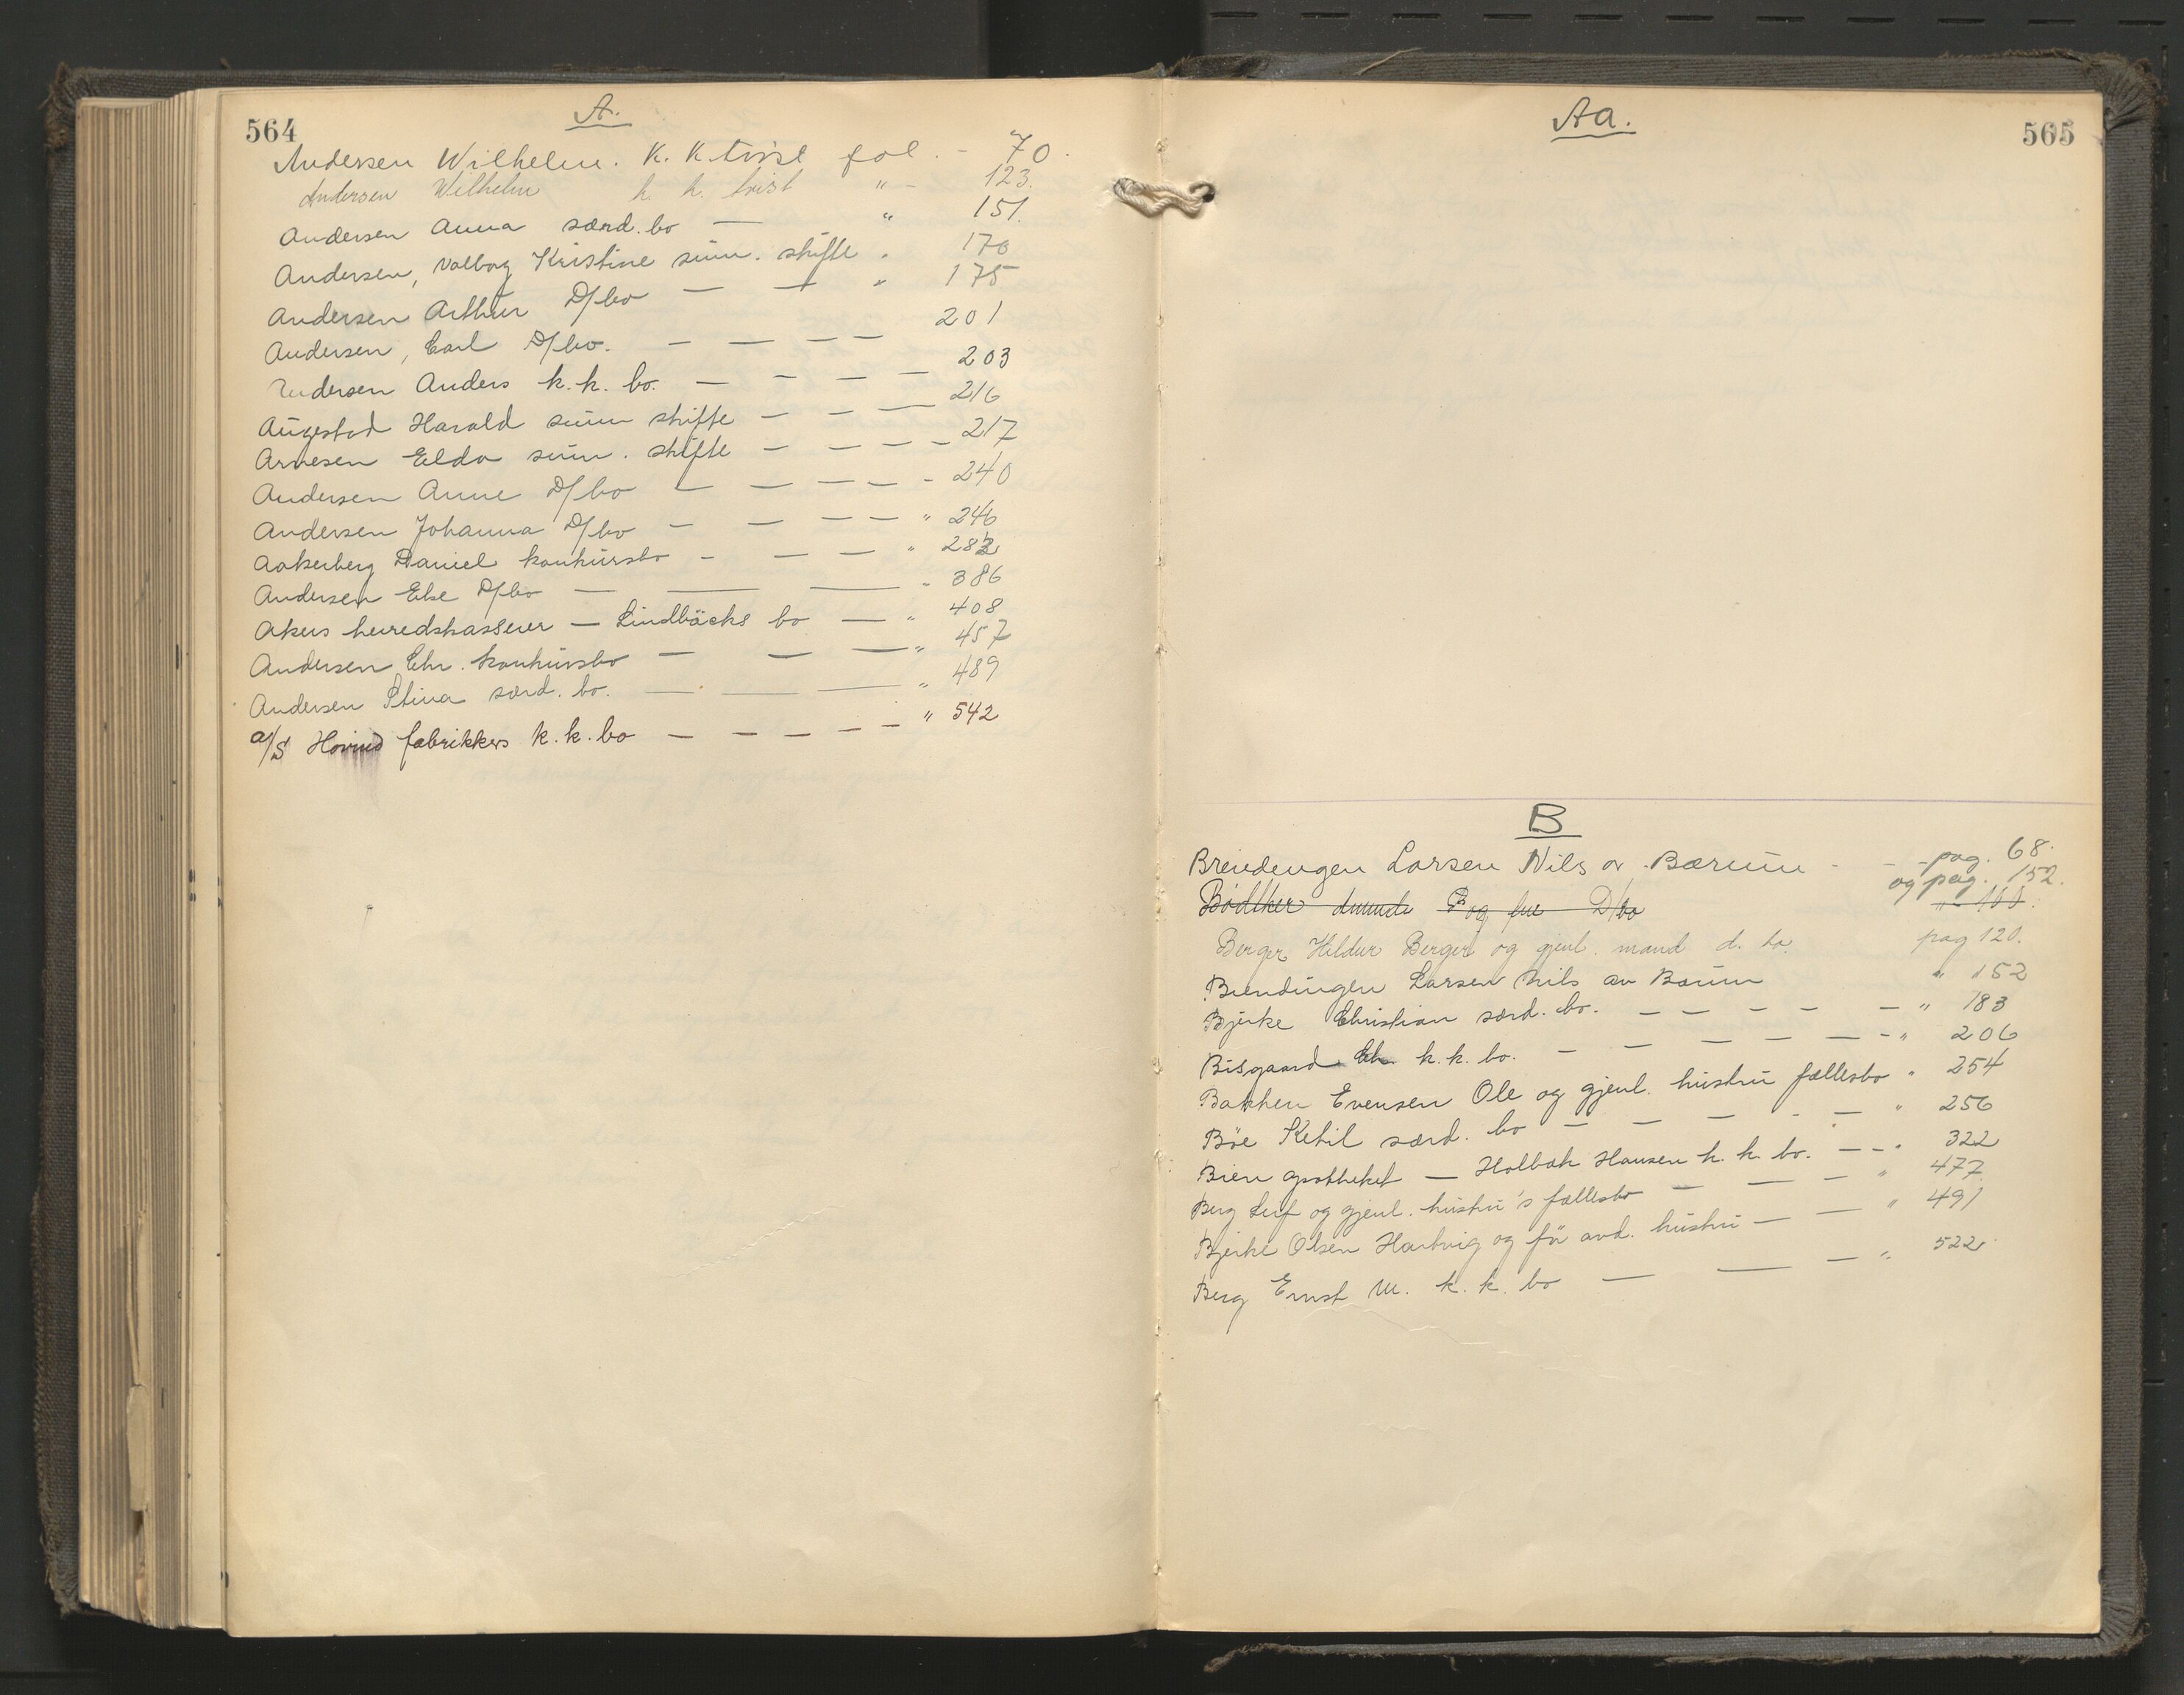 564
A.
Andersen Wilhelm. K. K. tvist fol. - 70.
Andersen Wilhelm k. k. tvist " - 123.
Andersen Anna særd. bo — " 151.
Andersen, Valborg Kristine sum. skifte " 170
Andersen Arthur D/bo — — " 175
Andersen, Carl D/bo. — — — — 201
Andersen Anders k. k. bo. — — — — 203
Augestad Harald sum skifte — — — 216
Arnesen Elda sum. skifte — — — — 217
Andersen Anne D/bo — — — — - 240
Andersen Johanna D/bo — — — — " 246
Aakerberg Daniel konkursbo — — — " 283
Andersen Else D/bo — — — " 386
Akers herredskasserer — Lindbäcks bo — " 408
Andersen Chr. konkursbo — — — " 457
Andersen Stina særd. bo. — — — " 489
A/S Hovind fabrikkers k. k. bo — — — — — " 542
Aa.
565
B
Breudengen Larsen Nils av Bærum - - - pag. 68.
og pag. 152.
Bødtker P. og frue D/bo " - 100.
Berger Hildur Berger og gjenl. mand d. bo. pag 120.
Brendingen Larsen Nils av Bærum " 152
Bjerke Christian særd. bo. — — — — — " 183
Bisgaard Chr. k. k. bo. — — — — — - " 206
Bakken Evensen Ole og gjenl. hustru fællesbo " 254
Böe Ketil særd. bo — — — - — " 256
Bien apotheket — Holbæk Hansen k. k. bo. — - " 322
Berg Leif og gjenl. hustru's fællesbo — — — " 477
Bjerke Olsen Hartvig og før avd. hustru — — " 491
Berg Ernst M. k. k. bo — — — " 522